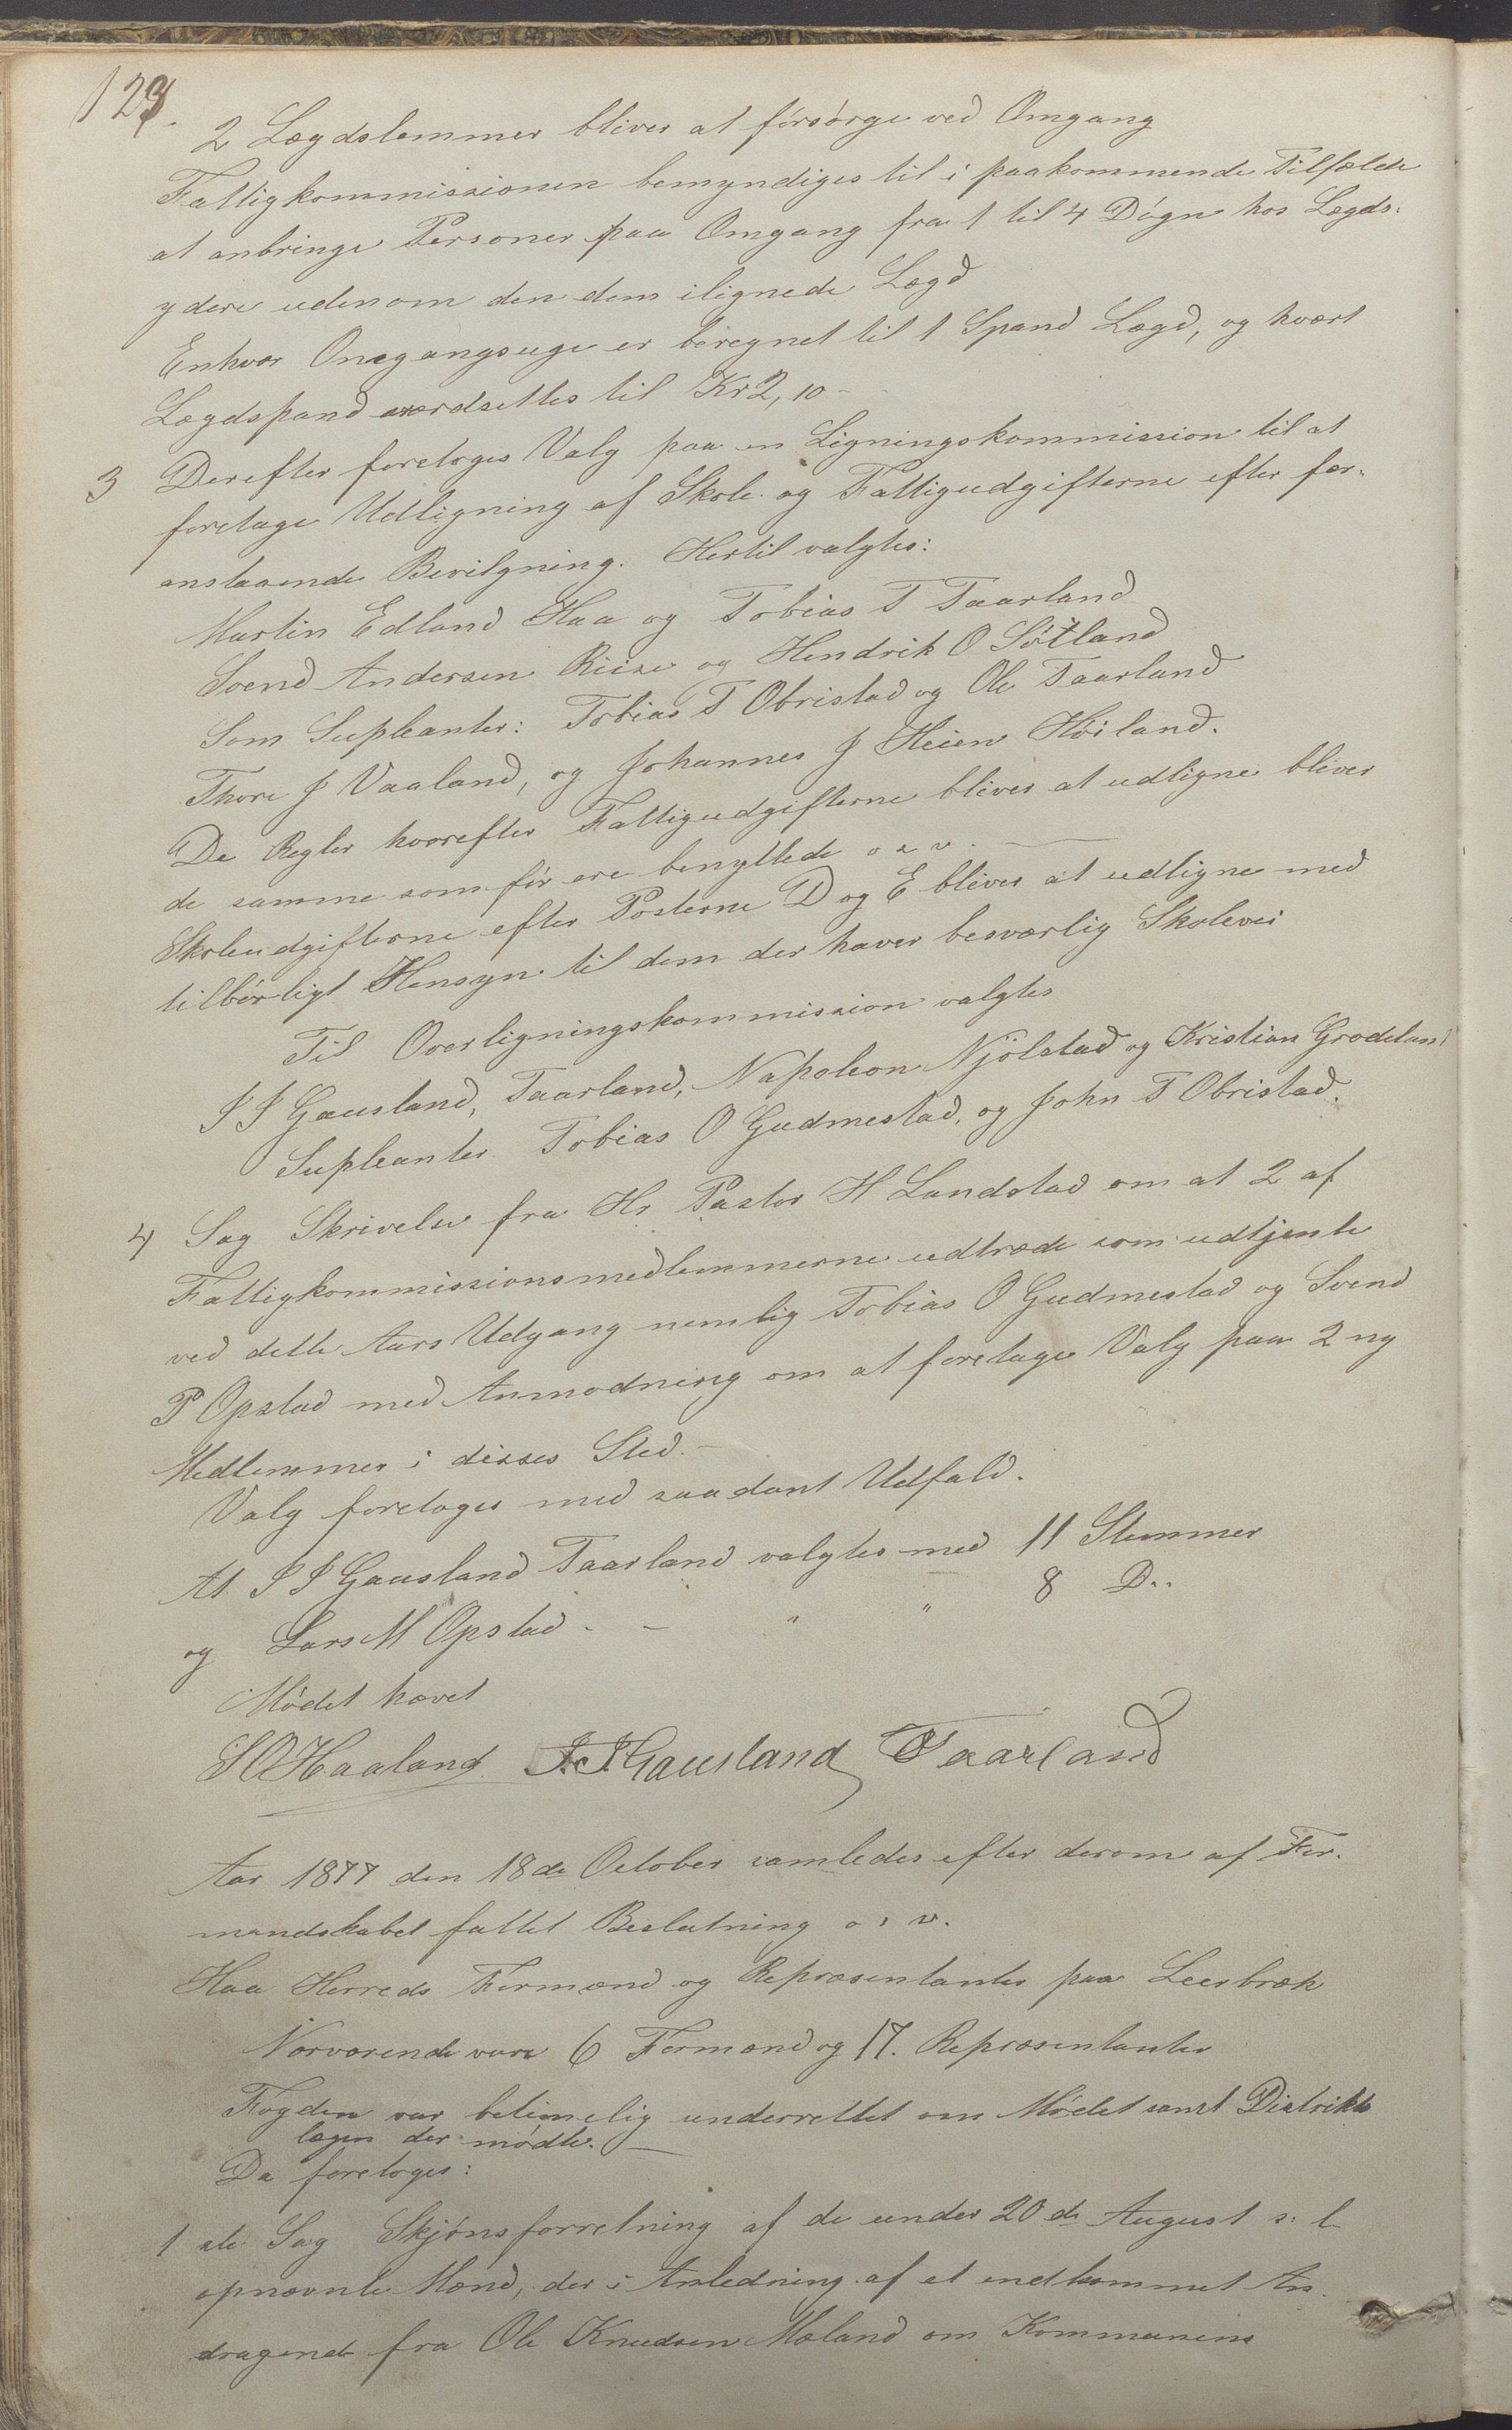 129.
2 Lægdslemmer bliver at forsørge ved Omgang
Fattigkommissionen bemyndiges til i paakommende Tilfælde
at anbringe Personer paa Omgang fra 1 til 4 Døgn hos Lægds-
ydere udenom den dem ilignede Lægd
Enhver Omgangsuge er beregnet til 1 Spand Lægd, og hvert
Lægdspand værdsettes til Kr 2,10 -
3 Derefter foretoges Valg paa en Ligningskommission til at
foretage Udligning af Skole- og Fattigudgifterne efter for-
anstaaende Bevilgning. Hertil valgtes:
Martin Edland Haa og Tobias T Taarland
Svend Andersen Riise og Hendrik O Søtland
Som Supleanter: Tobias T Obristad og Ole Taarland
Thore J Vaaland, og Johannes J Heien Høiland.
De Regler hvorefter Fattigudgifterne bliver at udligne bliver
de samme som før ere benyttede o s v. —
Skoleudgifterne efter Posterne D og E bliver at udligne med
tilbørligt Hensyn til dem der haver besværlig Skolevei
Til Overligningskommission valgtes
I I Gausland, Taarland, Napoleon Njølstad og Kristian Grødeland
Supleanter Tobias O Gudmestad, og John T Obristad.
4 Sag Skrivelse fra Hr Pastor H Landstad om at 2 af
Fattigkommissionsmedlemmerne udtræde som udtjente
ved dette Aars Udgang nemlig Tobias O Gudmestad og Svend
P Opstad med Anmodning om at foretage Valg paa 2 ny
Medlemmer i disses Sted. -
Valg foretoges med saadant Udfald.
At I I Gausland Taarland valgtes med 11 Stemmer
og Lars M Opstad - — " " 8 D..
Mødet hævet
S O Haaland I. I. Gausland O Taarland
Aar 1877 den 18de October samledes efter derom af For-
mandskabet fattet Beslutning o s v.
Haa Herreds Formænd og Repræsentanter paa Leerbræk
Nærværende vare 6 Formænd og 17. Repræsentanter
Fogden var betimelig underrettet om Mødet samt Distrikts
lægen der mødte. —
Da foretoges:
1 ste Sag Skjønsforretning af de under 20de August s: l
opnævnte Mænd, der i Anledning af et indkommet An-
dragende fra Ole Knudsen Mæland om Kommunens